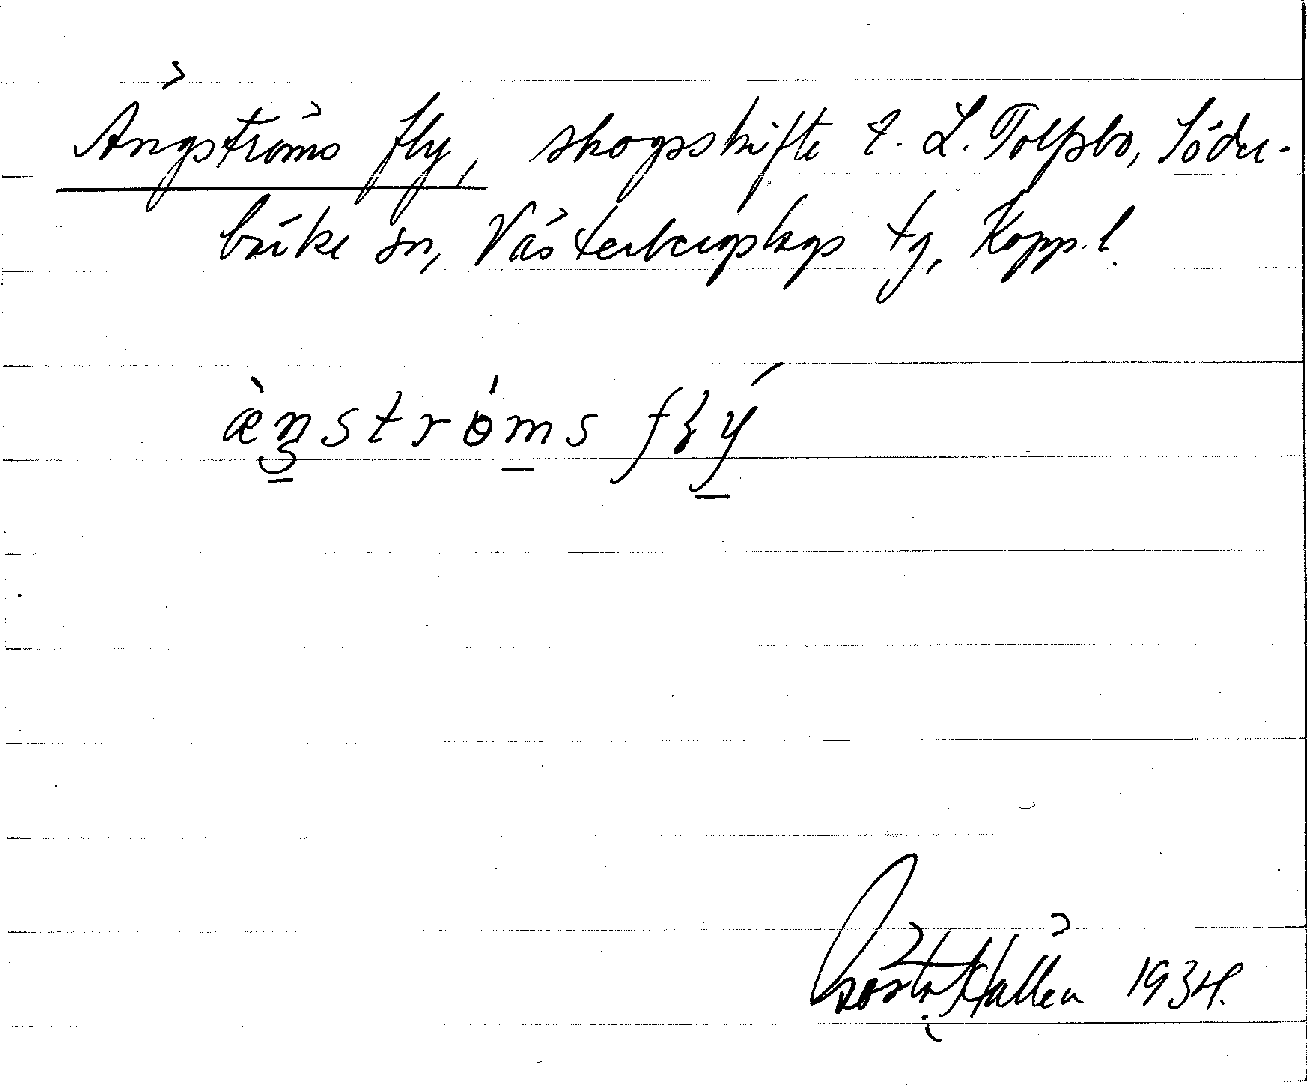 Ängströms fly, skogsskifte t. L. Tolfsbo, Söder-
bärke sn, Västerbergslags tg, Kopp. l.
æ̀ŋströ́ms flý
Gösta Hallén 1934.